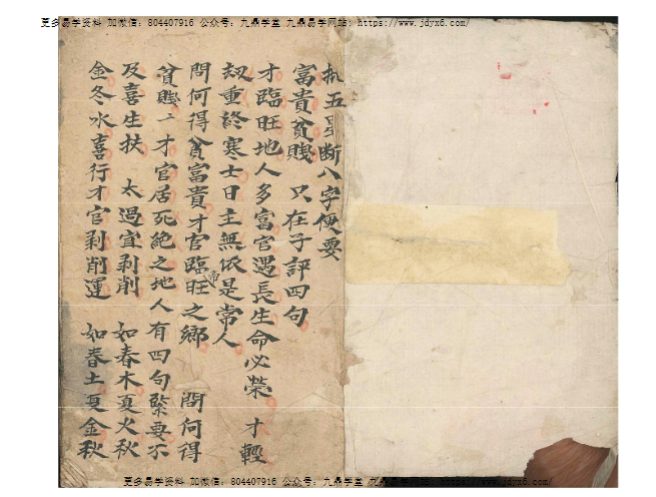 更多易学资料 加微信：804407916 公众号：九鼎学堂 九鼎易学网站：https://www.jdyx6.com/
五星断八字便要
富貴貧賤 只在子評四句
才臨旺地人多富官遇長生命必榮 才輕
刼重終寒士日主無依是常人
問何得貧富貴才官臨旺之鄉 問何得
貧賤 才官居死絶之地人有四句緊要不
及喜生扶 太過宜剥削 如春木夏火秋
金冬水喜行才官剥削運 如春土夏金秋
更多易学资料 加微信：804407916 公众号：九鼎学堂 九鼎易学网站：https://www.jdyx6.com/